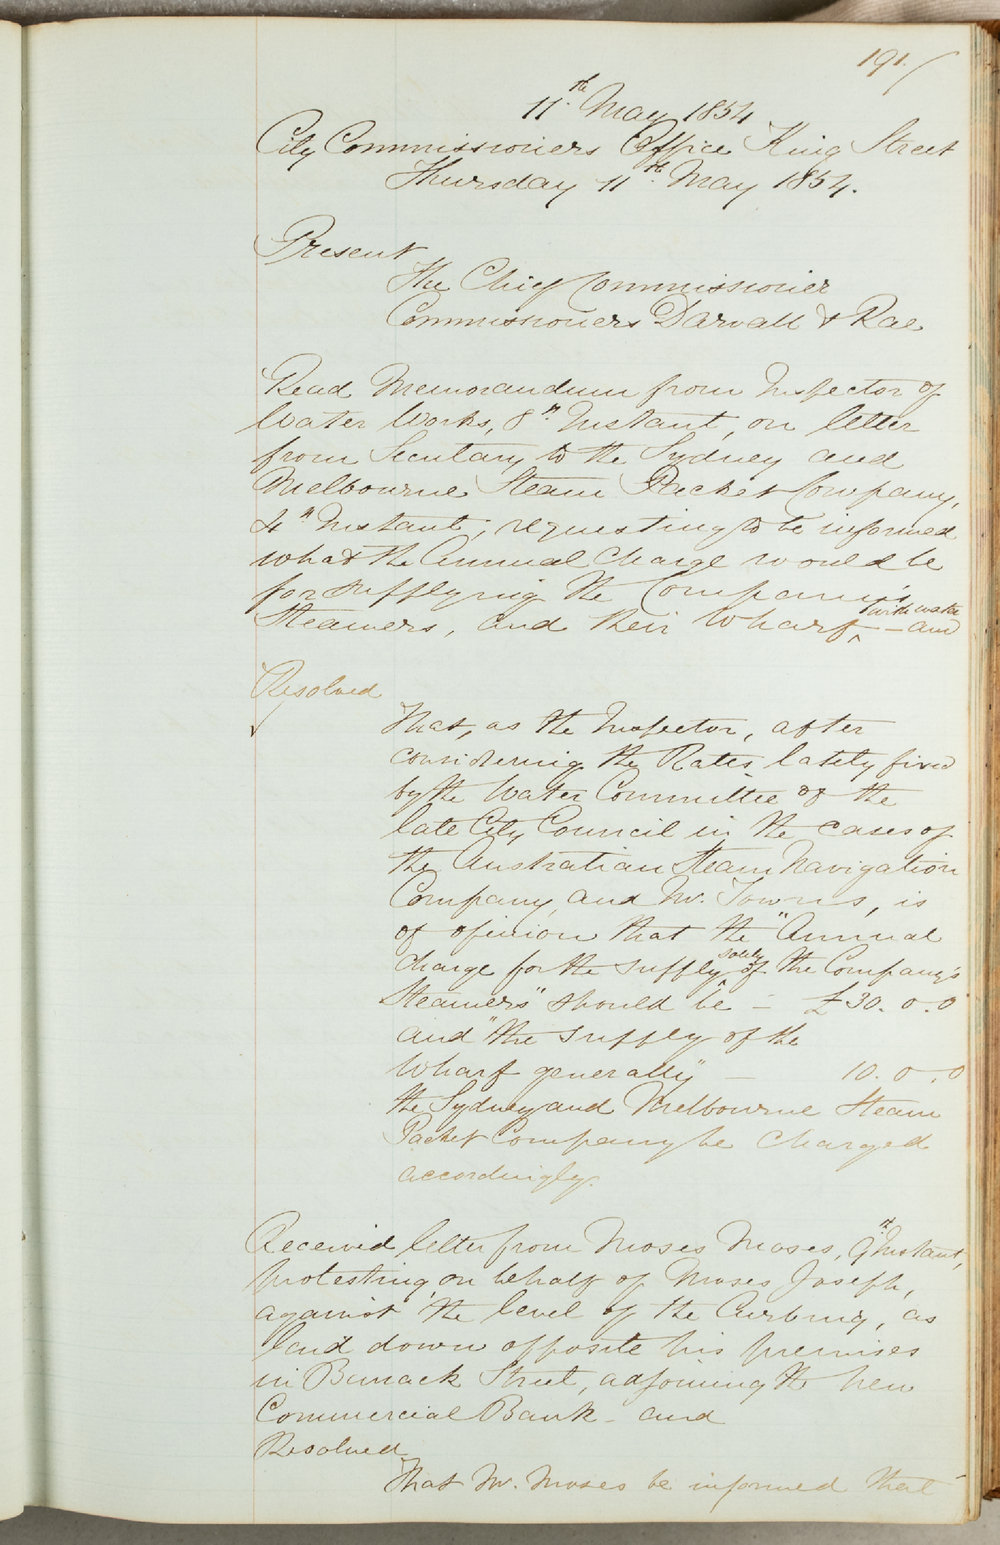 191.
11th May 1854
City Commissioners Office King Street
Thursday 11th May 1854.
Present
The Chief Commissioner
Commissioners Darvall & Rae
Read Memorandum from Inspector of
Water Works, 8th Instant, on letter
from Secretary to the Sydney and
Melbourne Steam Packet Company,
4th Instant; requesting to be informed
what the Annual charge would be
for supplying the Company's
Steamers, and their Wharf, with water – and
Resolved
That, as the Inspector, after
considering the Rates lately fixed
by the Water Committee of the
late City Council in the cases of
the Australian Steam Navigation
Company, and Mr. Towns, is
of opinion that the "Annual
charge for the supply solely of the Company's
Steamers" should be – £30.0.0
and "the supply of the
Wharf generally" – 10.0.0
the Sydney and Melbourne Steam
Packet Company be charged
accordingly.
Received letter from Moses Moses, 9th Instant,
protesting, on behalf of Moses Joseph,
against the level of the Curbing, as
laid down opposite his premises
in Barrack Street, adjoining the new
Commercial Bank – and
Resolved
That Mr. Moses be informed that